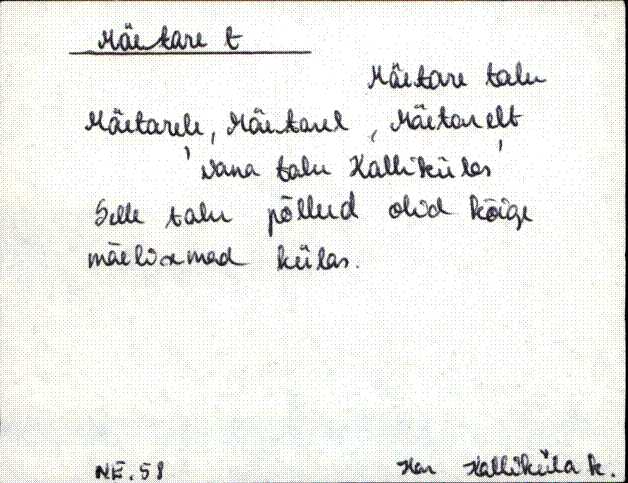 Mäetare t
Mäetare talu
Mäetarele, Mäetarel, Mäetarelt
'vana talu Kallikülas'
Selle talu põllud olid kõige
mäelisemad külas.
NE. 58
Han Kalliküla k.